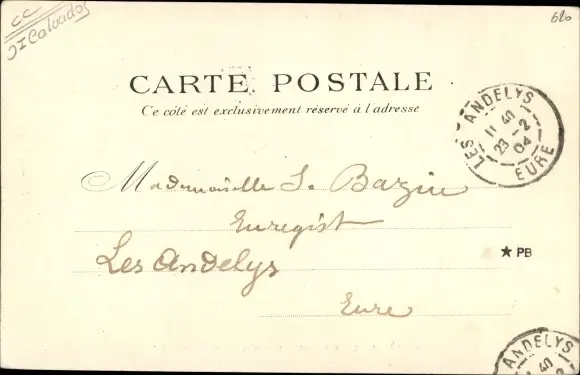 CC
JI Calvados
620
CARTE POSTALE
Ce côté est exclusivement réservé à l'adresse
LES ANDELYS
11 40
23 - 2
04
EURE
Mademoiselle S. Bazin
Enregist
Les Andelys
Eure
★ PB
ANDELYS